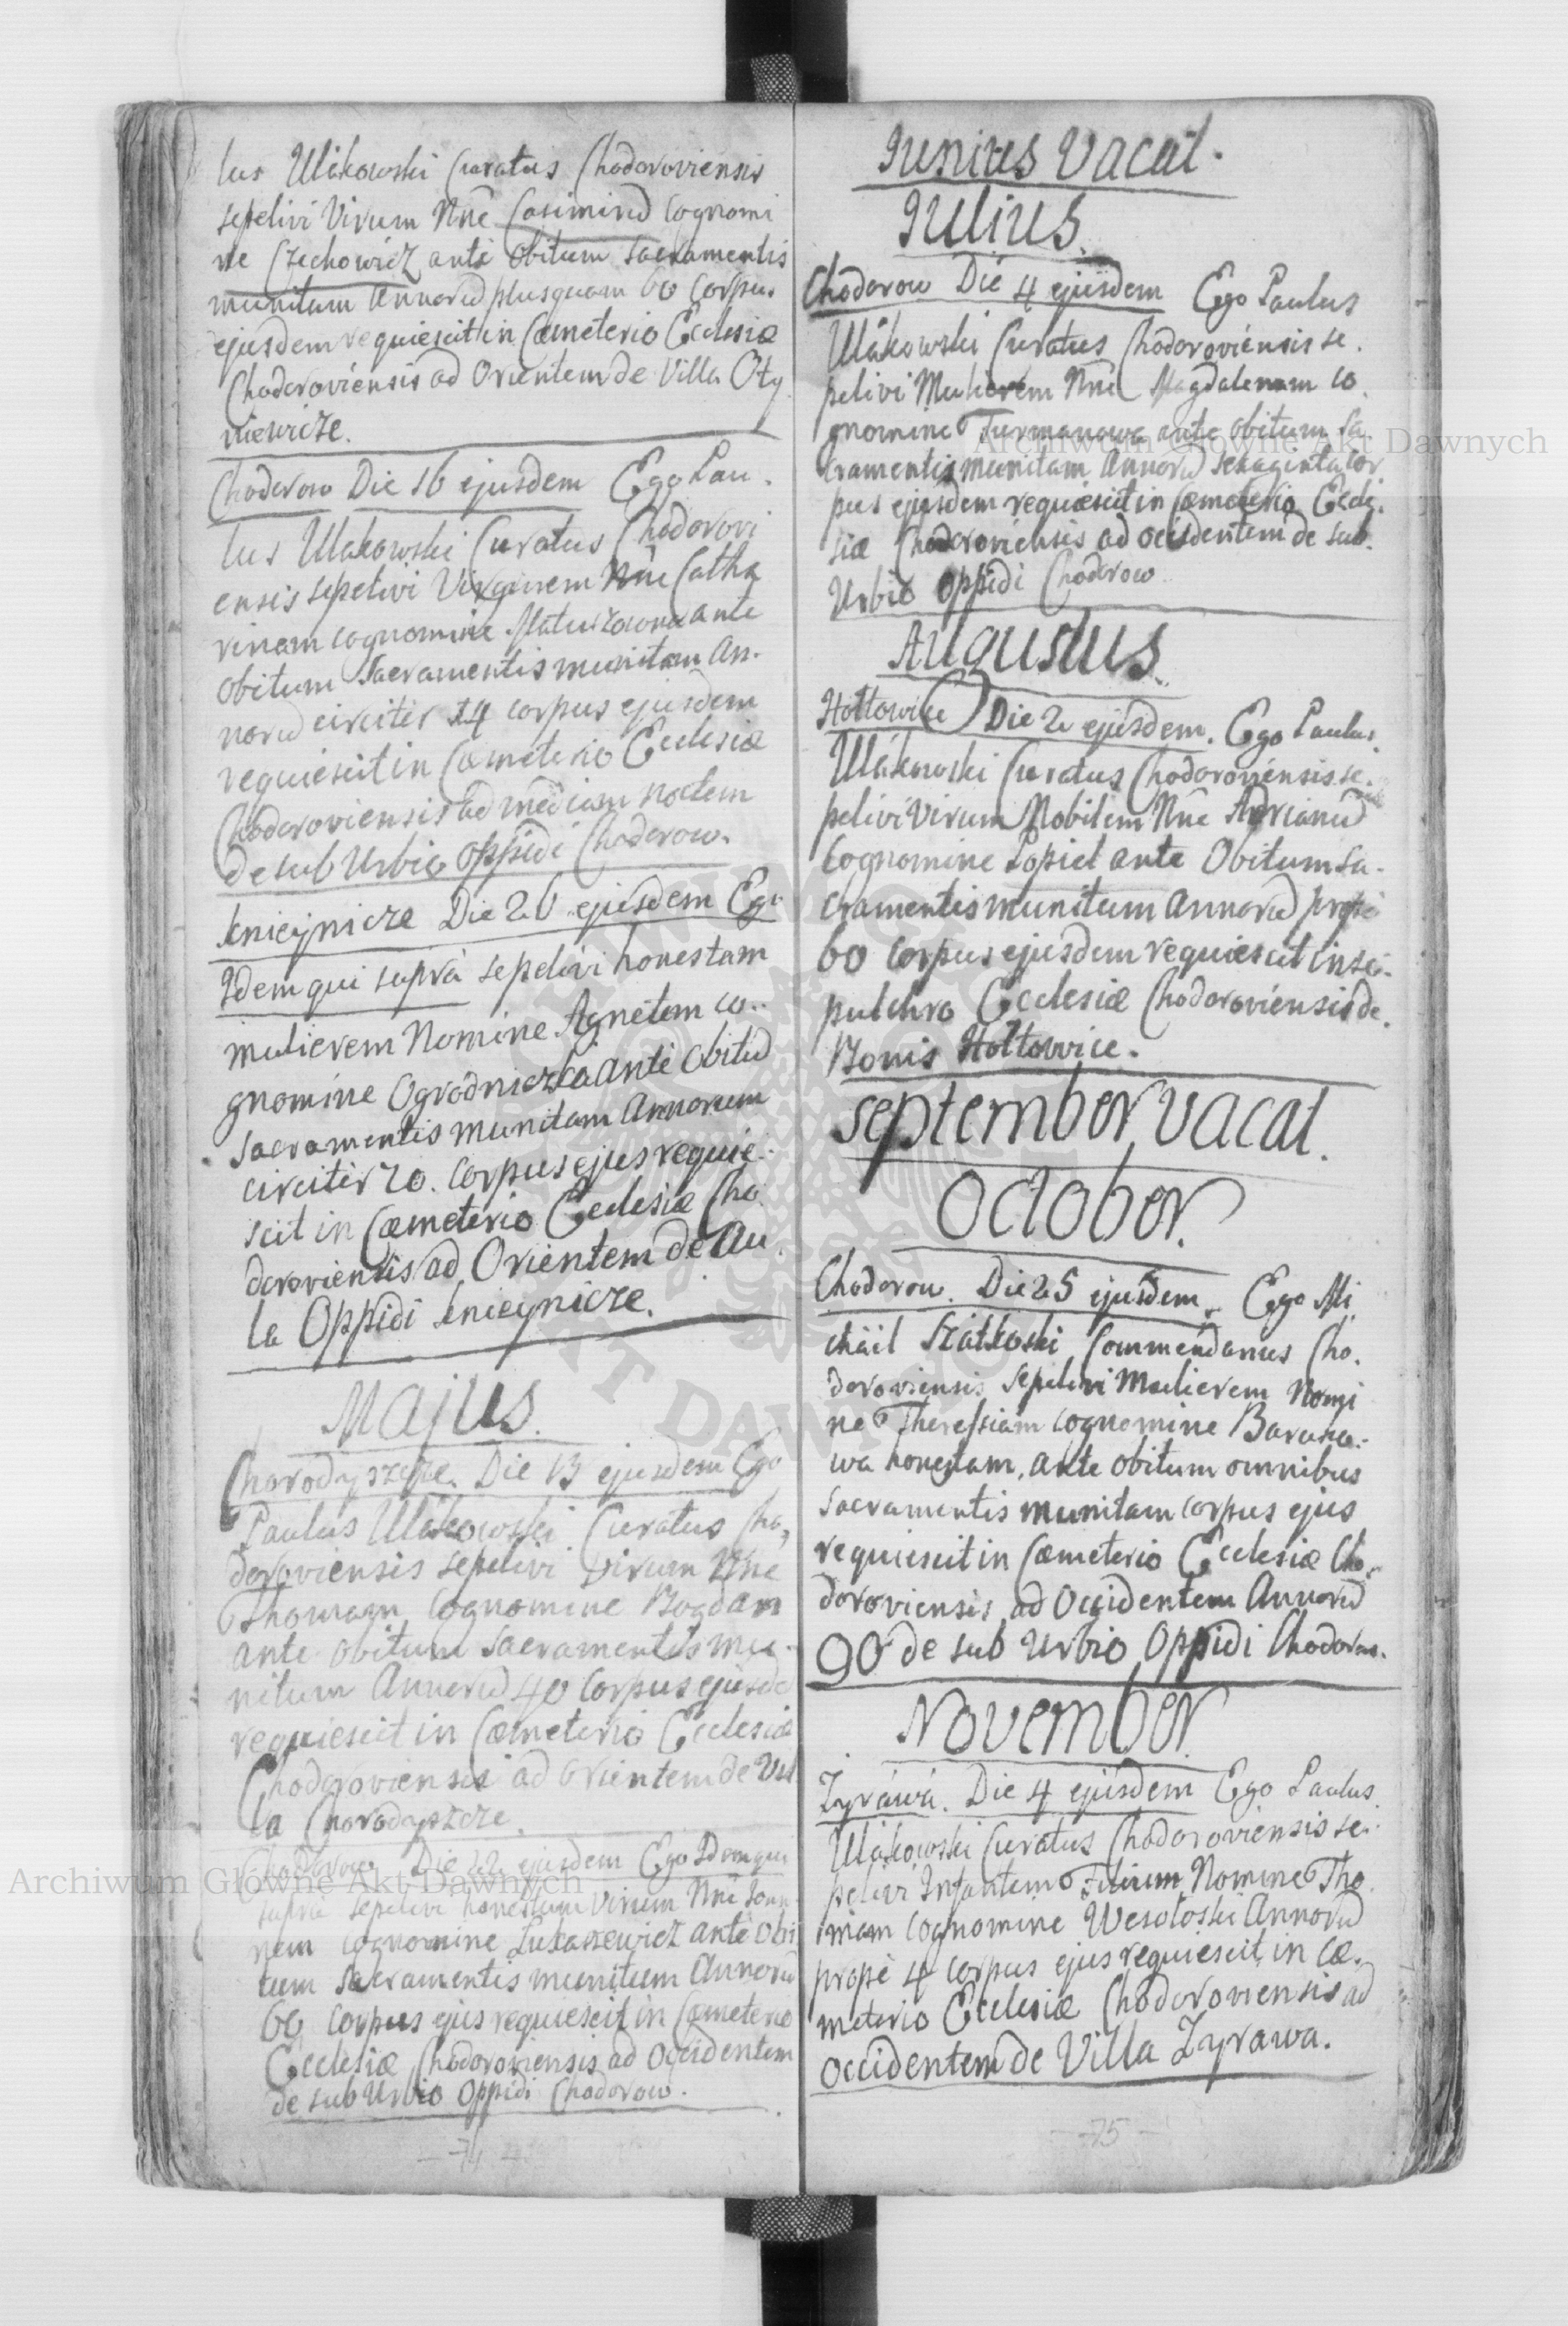 lus Ulâkowski Curatus Chodoroviensis
sepelivi Virum Nñe Casimirũ Cognomi
ne Czechowicz ante obitum sacramentis
munitum Annorũ plusquam 60 Corpus
ejusdem requiescit in Cæmeterio Ecclesiæ
Chodoroviensis ad Orientem de Villa Oty
niewicze.
Chodorow Die 16 ejusdem Ego Pau.
lus Ulakowski Curatus Chodorovi
ensis sepelivi Virginem Nñe Catha
rinam cognomine Matuszowna ante
obitum Sacramentis munitam An.
norũ circiter 14 corpus ejusdem
requiescit in Cæmeterio Ecclesiæ
Chodoroviensis ad mediam noctem
de sub Urbio oppidi Chodorow.
Knieynicze Die 26 ejusdem Ego
Idem qui suprà sepelivi honestam
mulierem Nomine Agnetem co..
gnomine Ogrodniczka ante obitũ
Sacramentis munitam Annorum
circiter 20. Corpus ejus requie.
scit in Cæmeterio Ecclesiæ Cho.
doroviensis ad Orientem de Au.
la Oppidi Knieynicze.
Majus.
Chorodyszcze. Die 13 ejusdem Ego
Paulus Ulâkowski Curatus Cho,
doroviensis sepelivi Virum Nñe
Thomam Cognomine Bogdan
ante obitum Sacramentis mu.
nitum Annorũ 40 Corpus ejusdẽ
requiescit in Cæmeterio Ecclesiæ
Chodoroviensis ad Orientem de Vil
la Chorodyszcze.
Chodorow Die 22 ejusdem Ego Idem qui
supra sepelivi honestum virum Nñe Ioan
nem cognomine Łukasiewicz ante Obi
tum Sacramentis munitum Annorũ
60 corpus ejus requiescit in Cæmeterio
Ecclesiæ Chodoroviensis ad Occidentem
de sub Urbio Oppidi Chodorow.
74
Iunius Vacat.
Iulius.
Chodorow Die 4 ejusdem Ego Paulus
Ulâkowski Curatus Chodoroviensis se.
pelivi Mulierem Nñe Magdalenam co.
gnomine Furmanowa ante obitum Sa
cramentis munitam Annorũ sexaginta Cor
pus ejusdem requiescit in Cæmeterio Eccle.
siæ Chodoroviensis ad occidentem de sub.
Urbio Oppidi Chodorow
Augustus.
Hołłowice Die 2 ejusdem. Ego Paulus
Ulâkowski Curatus Chodoroviensis se.
pelivi Virum Nobilem Nñe Adrianũ
Cognomine Popiel ante Obitum Sa.
cramentis munitum Annorũ prope
60 Corpus ejusdem requiescit in se.
pulchro Ecclesiæ Chodoroviensis de.
Bonis Hołłowice.
September, Vacat.
October.
Chodorow. Die 25 ejusdem. Ego Mi
chäil Szâtkoski Commendarius Cho.
doroviensis Sepelivi Mulierem Nomi
ne Theressiam cognomine Barano.
wa honestam, ante obitum omnibus
Sacramentis munitam corpus ejus
requiescit in Cæmeterio Ecclesiæ Cho.
doroviensis ad Occidentem Annorũ
90 de sub Urbio Oppidi Chodorow.
November.
Zyrawa. Die 4 ejusdem Ego Paulus
Ulâkowski Curatus Chodoroviensis se.
pelivi Infantem Filium Nomine Tho
mam cognomine Wesołoski Annorũ
prope 4 corpus ejus requiescit in Cæ.
meterio Ecclesiæ Chodoroviensis ad
occidentem de Villa Zyrawa.
75
Archiwum Główne Akt Dawnych
Archiwum Główne Akt Dawnych